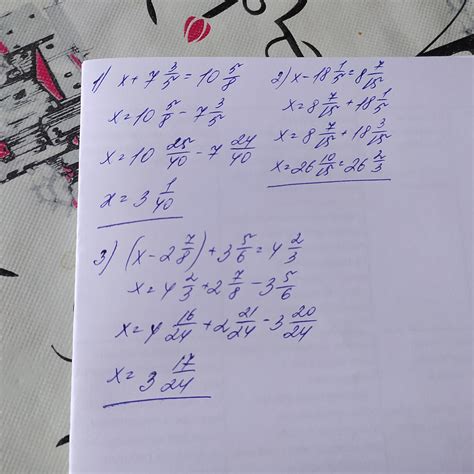 1) x + 7 3/5 = 10 5/8
x = 10 5/8 - 7 3/5
x = 10 25/40 - 7 24/40
x = 3 1/40
2) x - 18 1/5 = 8 7/15
x = 8 7/15 + 18 1/5
x = 8 7/15 + 18 3/15
x = 26 10/15 = 26 2/3
3) (x - 2 7/8) + 3 5/6 = 4 2/3
x = 4 2/3 + 2 7/8 - 3 5/6
x = 4 16/24 + 2 21/24 - 3 20/24
x = 3 17/24